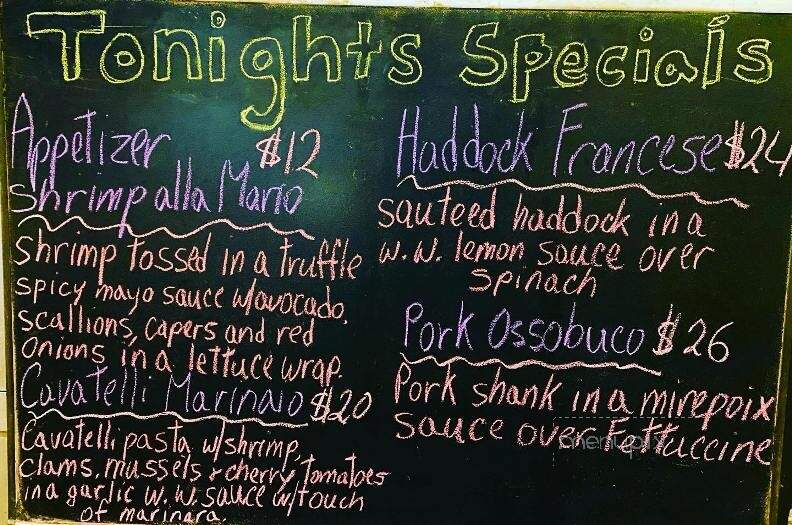 Tonights Specials
Appetizer $12
Shrimp alla Mario
shrimp tossed in a truffle
spicy mayo sauce w/avocado,
scallions, capers and red
onions in a lettuce wrap.
Cavatelli Marinaio $20
Cavatelli pasta w/shrimp,
clams, mussels & cherry tomatoes
in a garlic w.w. sauce w/touch
of marinara.
Haddock Francese $24
sauteed haddock in a
w.w. lemon sauce over
spinach
Pork Ossobuco $26
Pork shank in a mirepoix
sauce over Fettuccine
menupix